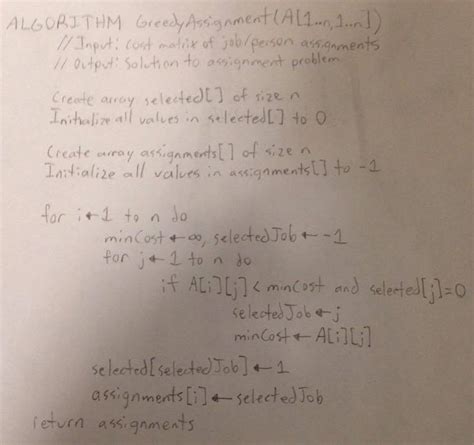 ALGORITHM GreedyAssignment(A[1..n,1..n])
// Input: cost matrix of job/person assignments
// Output: Solution to assignment problem
Create array selected[] of size n
Initialize all values in selected[] to 0
Create array assignments[] of size n
Initialize all values in assignments[] to -1
for i←1 to n do
minCost ← ∞, selectedJob ← -1
for j←1 to n do
if A[i][j] < minCost and selected[j]=0
selectedJob ← j
minCost ← A[i][j]
selected[selectedJob] ← 1
assignments[i] ← selectedJob
return assignments